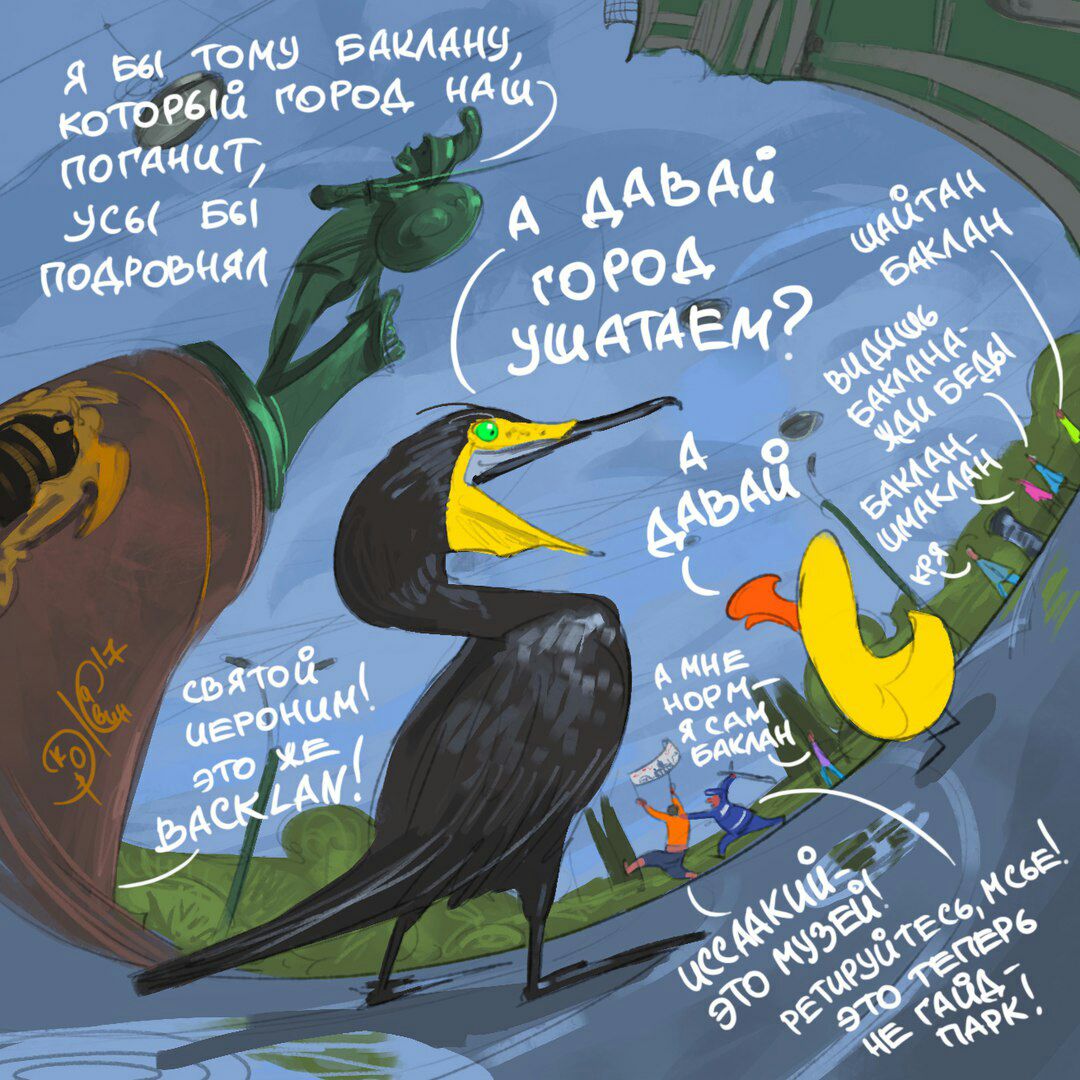 Я БЫ ТОМУ БАКЛАНУ,
КОТОРЫЙ ГОРОД НАШ
ПОГАНИТ,
УСЫ БЫ
ПОДРОВНЯЛ
А ДАВАЙ
ГОРОД
УШАТАЕМ?
ШАЙТАН
БАКЛАН
ВИДИШЬ
БАКЛАНА-
ЖДИ БЕДЫ
БАКЛАН-
ШМАКЛАН
КРЯ
А
ДАВАЙ
СВЯТОЙ
ИЕРОНИМ!
ЭТО ЖЕ
BACKLAN!
А МНЕ
НОРМ-
Я САМ
БАКЛАН
ИССАКИЙ-
ЭТО МУЗЕЙ!
РЕТИРУЙТЕСЬ, МСЬЕ!
ЭТО ТЕПЕРЬ
НЕ ГАЙД-
ПАРК!